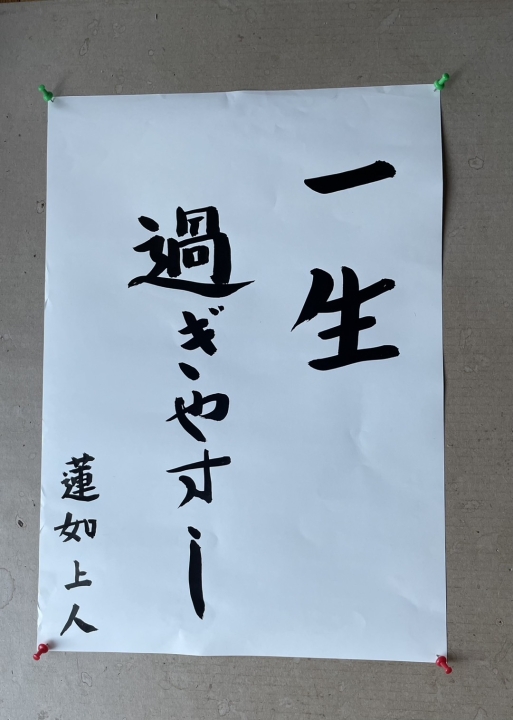 一生
過ぎやすし
蓮如上人